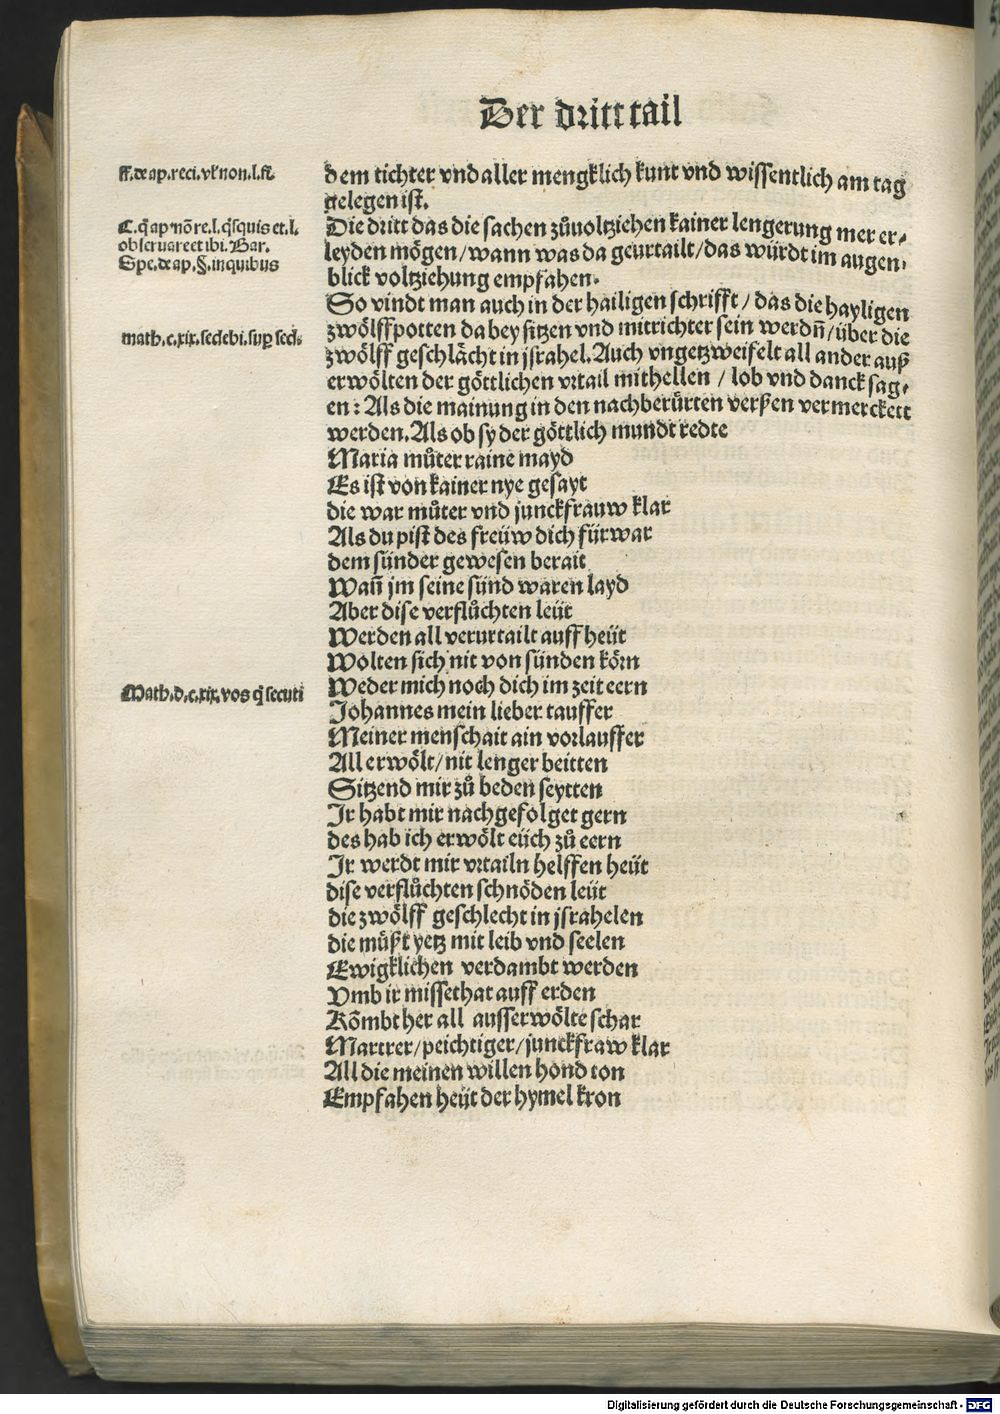 Der dritt tail
ff. de ap. reci. vł non. l. fi.
dem tichter vnd aller mengklich kunt vnd wissentlich am tag
gelegen ist.
C. q̃ ap nõ re. l. q̃squis et. l.
obseruare et ibi. Bar.
Spe. de ap. §. in quibus
Die dritt das die sachen zůuoltziehen kainer lengerung mer er⸗
leyden mögen/wann was da geurtailt/das würdt im augen⸗
blick voltziehung empfahen.
So vindt man auch in der hailigen schrifft/das die hayligen
math. c. xix. sedebi. suꝑ sed⸗
zwölffpotten da bey sitzen vnd mitrichter sein werdñ/über die
zwölff geschlächt in jsrahel. Auch vngetzweifelt all ander auß
erwölten der göttlichen vrtail mithellen / lob vnd danck sag⸗
en: Als die mainung in den nachberürten verßen vermerckett
werden. Als ob sy der göttlich mundt redte
Maria můter raine mayd
Es ist von kainer nye gesayt
die war můter vnd junckfrauw klar
Als du pist des freüw dich fürwar
dem sünder gewesen berait
Wañ jm seine sünd waren layd
Aber dise verflůchten leüt
Werden all verurtailt auff heüt
Wolten sich nit von sünden körn
Math. d. c. xix. vos q̃ secuti
Weder mich noch dich im zeit eern
Johannes mein lieber tauffer
Meiner menschait ain vorlauffer
All erwölt/nit lenger beitten
Sitzend mir zů beden seytten
Jr habt mir nachgefolget gern
des hab ich erwölt eüch zů eern
Jr werdt mir vrtailn helffen heüt
dise verflůchten schnöden leüt
die zwölff geschlecht in jsrahelen
die müßt yetz mit leib vnd seelen
Ewigklichen verdambt werden
Vmb ir missethat auff erden
Kõmbt her all ausserwölte schar
Martrer/peichtiger/junckfraw klar
All die meinen willen hond ton
Empfahen heüt der hymel kron
Digitalisierung gefördert durch die Deutsche Forschungsgemeinschaft - DFG